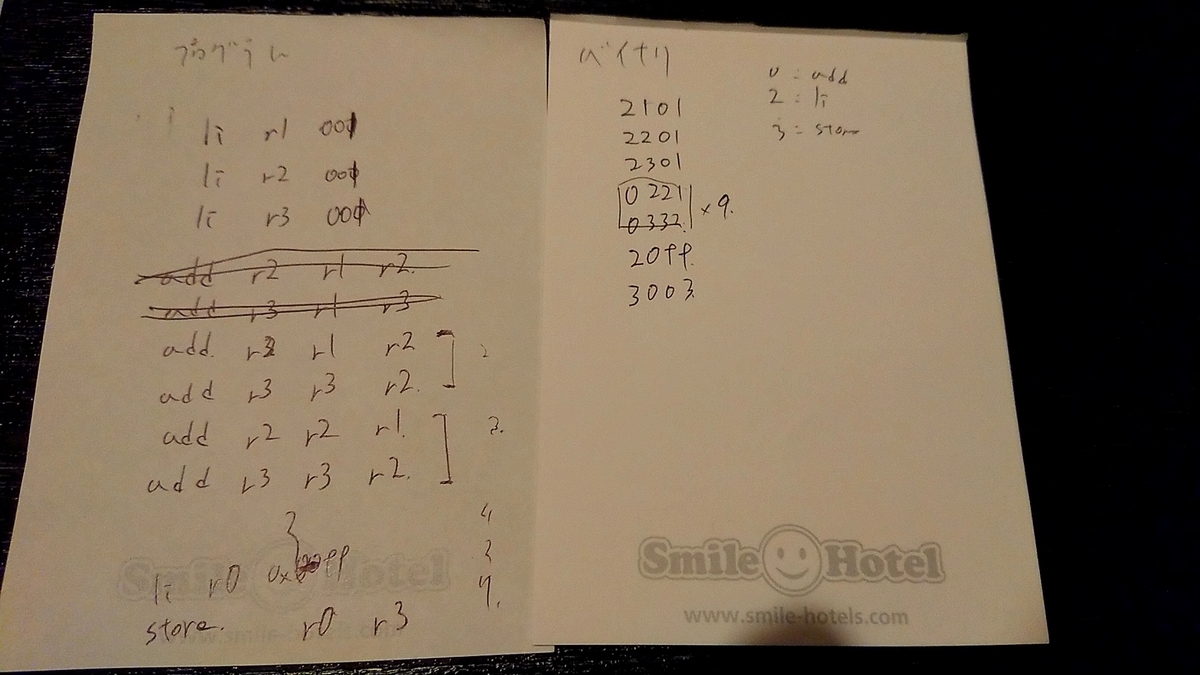 プログラム
li r1 001
li r2 001
li r3 001
add r2 r1 r2.
add r3 r1 r3
add. r2 r1 r2 2
add r3 r3 r2.
add r2 r2 r1. 3.
add r3 r3 r2.
4
li r0 0x ff
store. r0 r3
Smile Hotel
www.smile-hotels.com
バイナリ
0 : add
2 : li
3 : store
2101
2201
2301
0221
0332. × 9.
20ff.
3003.
Smile Hotel
www.smile-hotels.com